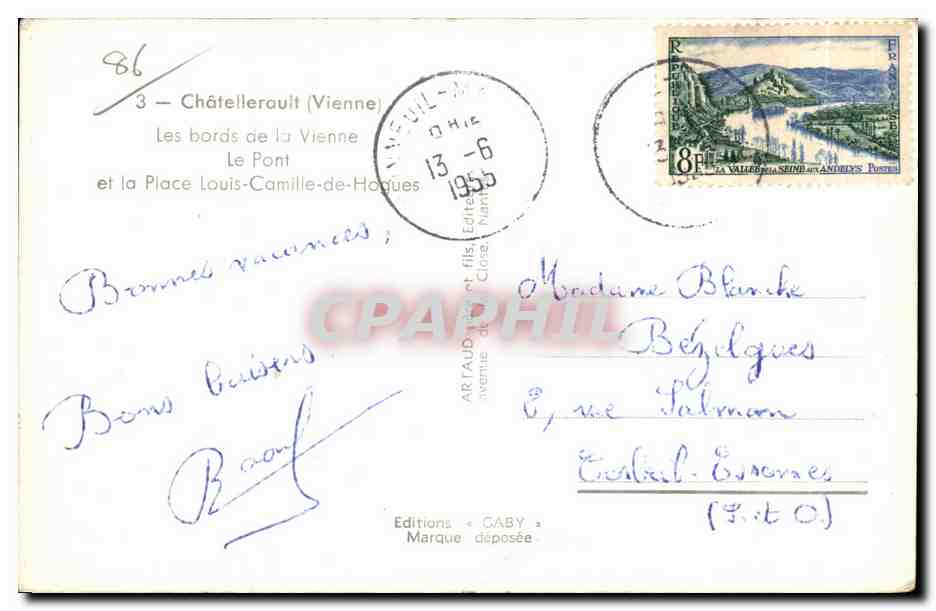 86
3 — Châtellerault (Vienne)
Les bords de la Vienne
Le Pont
et la Place Louis-Camille-de-Hogues
13 -6
1955
RÉPUBLIQUE FRANÇAISE
8F
LA VALLÉE DE LA SEINE AUX ANDELYS POSTES
Bonnes vacances,
Bons baisers.
Raoul
ARTAUD père et fils, Edite
avenue de Close. Nant
CPAPHIL
Madame Blanche
Bézelgues
2, rue Salmon
Corbeil-Essonnes
(S. et O.)
Editions « GABY »
Marque déposée